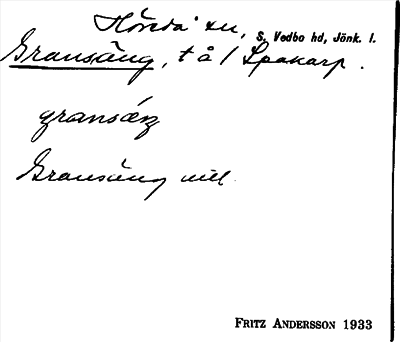 Hörda sn, S. Vedbo hd, Jönk. l.
Gransäng, t å 1 Spakarp.
gransäŋ
Gransäng
FRITZ ANDERSSON 1933